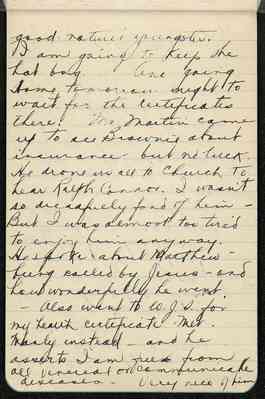 good natured youngster.
I am going to keep the
hat box. Are going
home tomorrow night to
wait for the certificates
there. Mr. Martin came
up to see Brownie about
insurance but no luck.
He drove us all to Church to
hear Ralph Connor. I wasn't
so dreadfully fond of him -
But I was almost too tired
to enjoy him anyway.
He spoke about Matthew
being called by Jesus - and
how wonderfully he went
- Also went to W.J.S. for
my health certificate. Met
Manly instead - and he
asserts I am free from
all venereal or communicable
diseases. Very nice of him